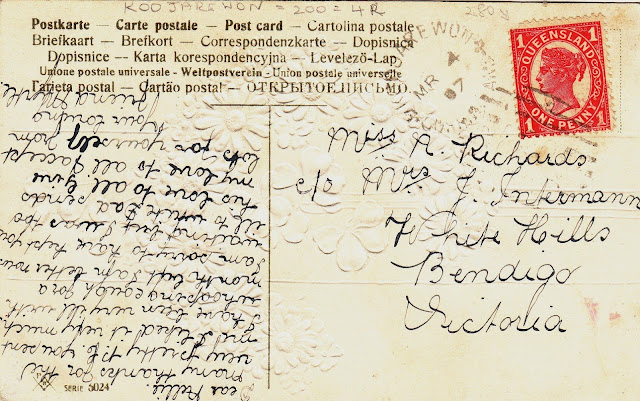 KOOJAREWON = 200 = 4R
Postkarte — Carte postale — Post card — Cartolina postale
Briefkaart — Brefkort — Correspondenzkarte — Dopisnica
Dopisnice — Karta korespondencyjna — Levelező-Lap
Unione postale universale - Weltpostverein - Union postale universelle
Tarjeta postal — Cartão postal — ОТКРЫТОЕ ПИСЬМО.
MR
07
QUEENSLAND
1 1
1 ONE PENNY 1
Miss A. Richards
c/o Mrs J. Intermann
White Hills
Bendigo
Victoria
Dear Nellie.
Many thanks for the
very pretty P.C. you sent
me I liked it very much
I have been very ill with
whooping cough for a
month but I am better now
I am sorry to have kept you
waiting but I was too
ill to write Dad sends
his love to all give
my love to all & accept
lots for yourself from
Your loving
friend
SERIE 5024